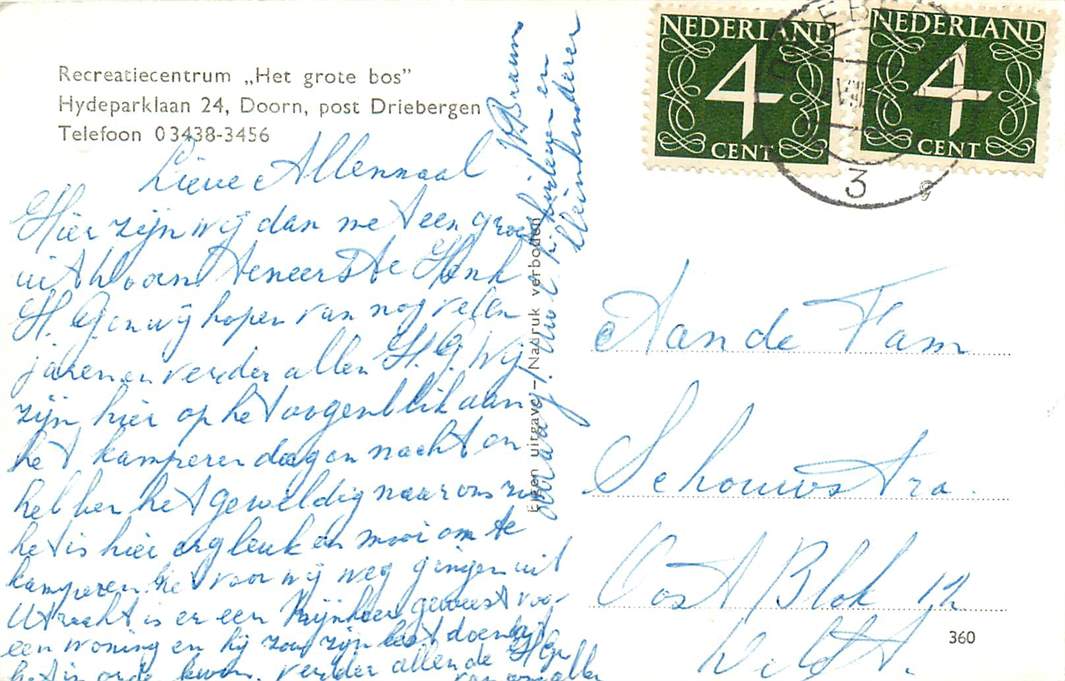 Recreatiecentrum „Het grote bos”
Hydeparklaan 24, Doorn, post Driebergen
Telefoon 03438-3456
Lieve Allemaal
Hier zijn wij dan met een groet
uit ten eerste Henk
H. G. en wij hopen van nog velen
jaren en verder allen H. G. Wij
zijn hier op het oogenblik aan
het kamperen dag en nacht en
hebben het geweldig naar ons zin
het is hier erg leuk en mooi om te
kamperen voor wij weg gingen uit
Utrecht is er een geweest voor
een woning en hij zou zijn best doen
het in orde verder allen de
van
kinderen en
kleinkinderen
Eigen uitgave – Nadruk verboden
NEDERLAND
4
CENT
NEDERLAND
4
CENT
3
Aan de Fam
Schouwstra.
Oost Blok 12
360